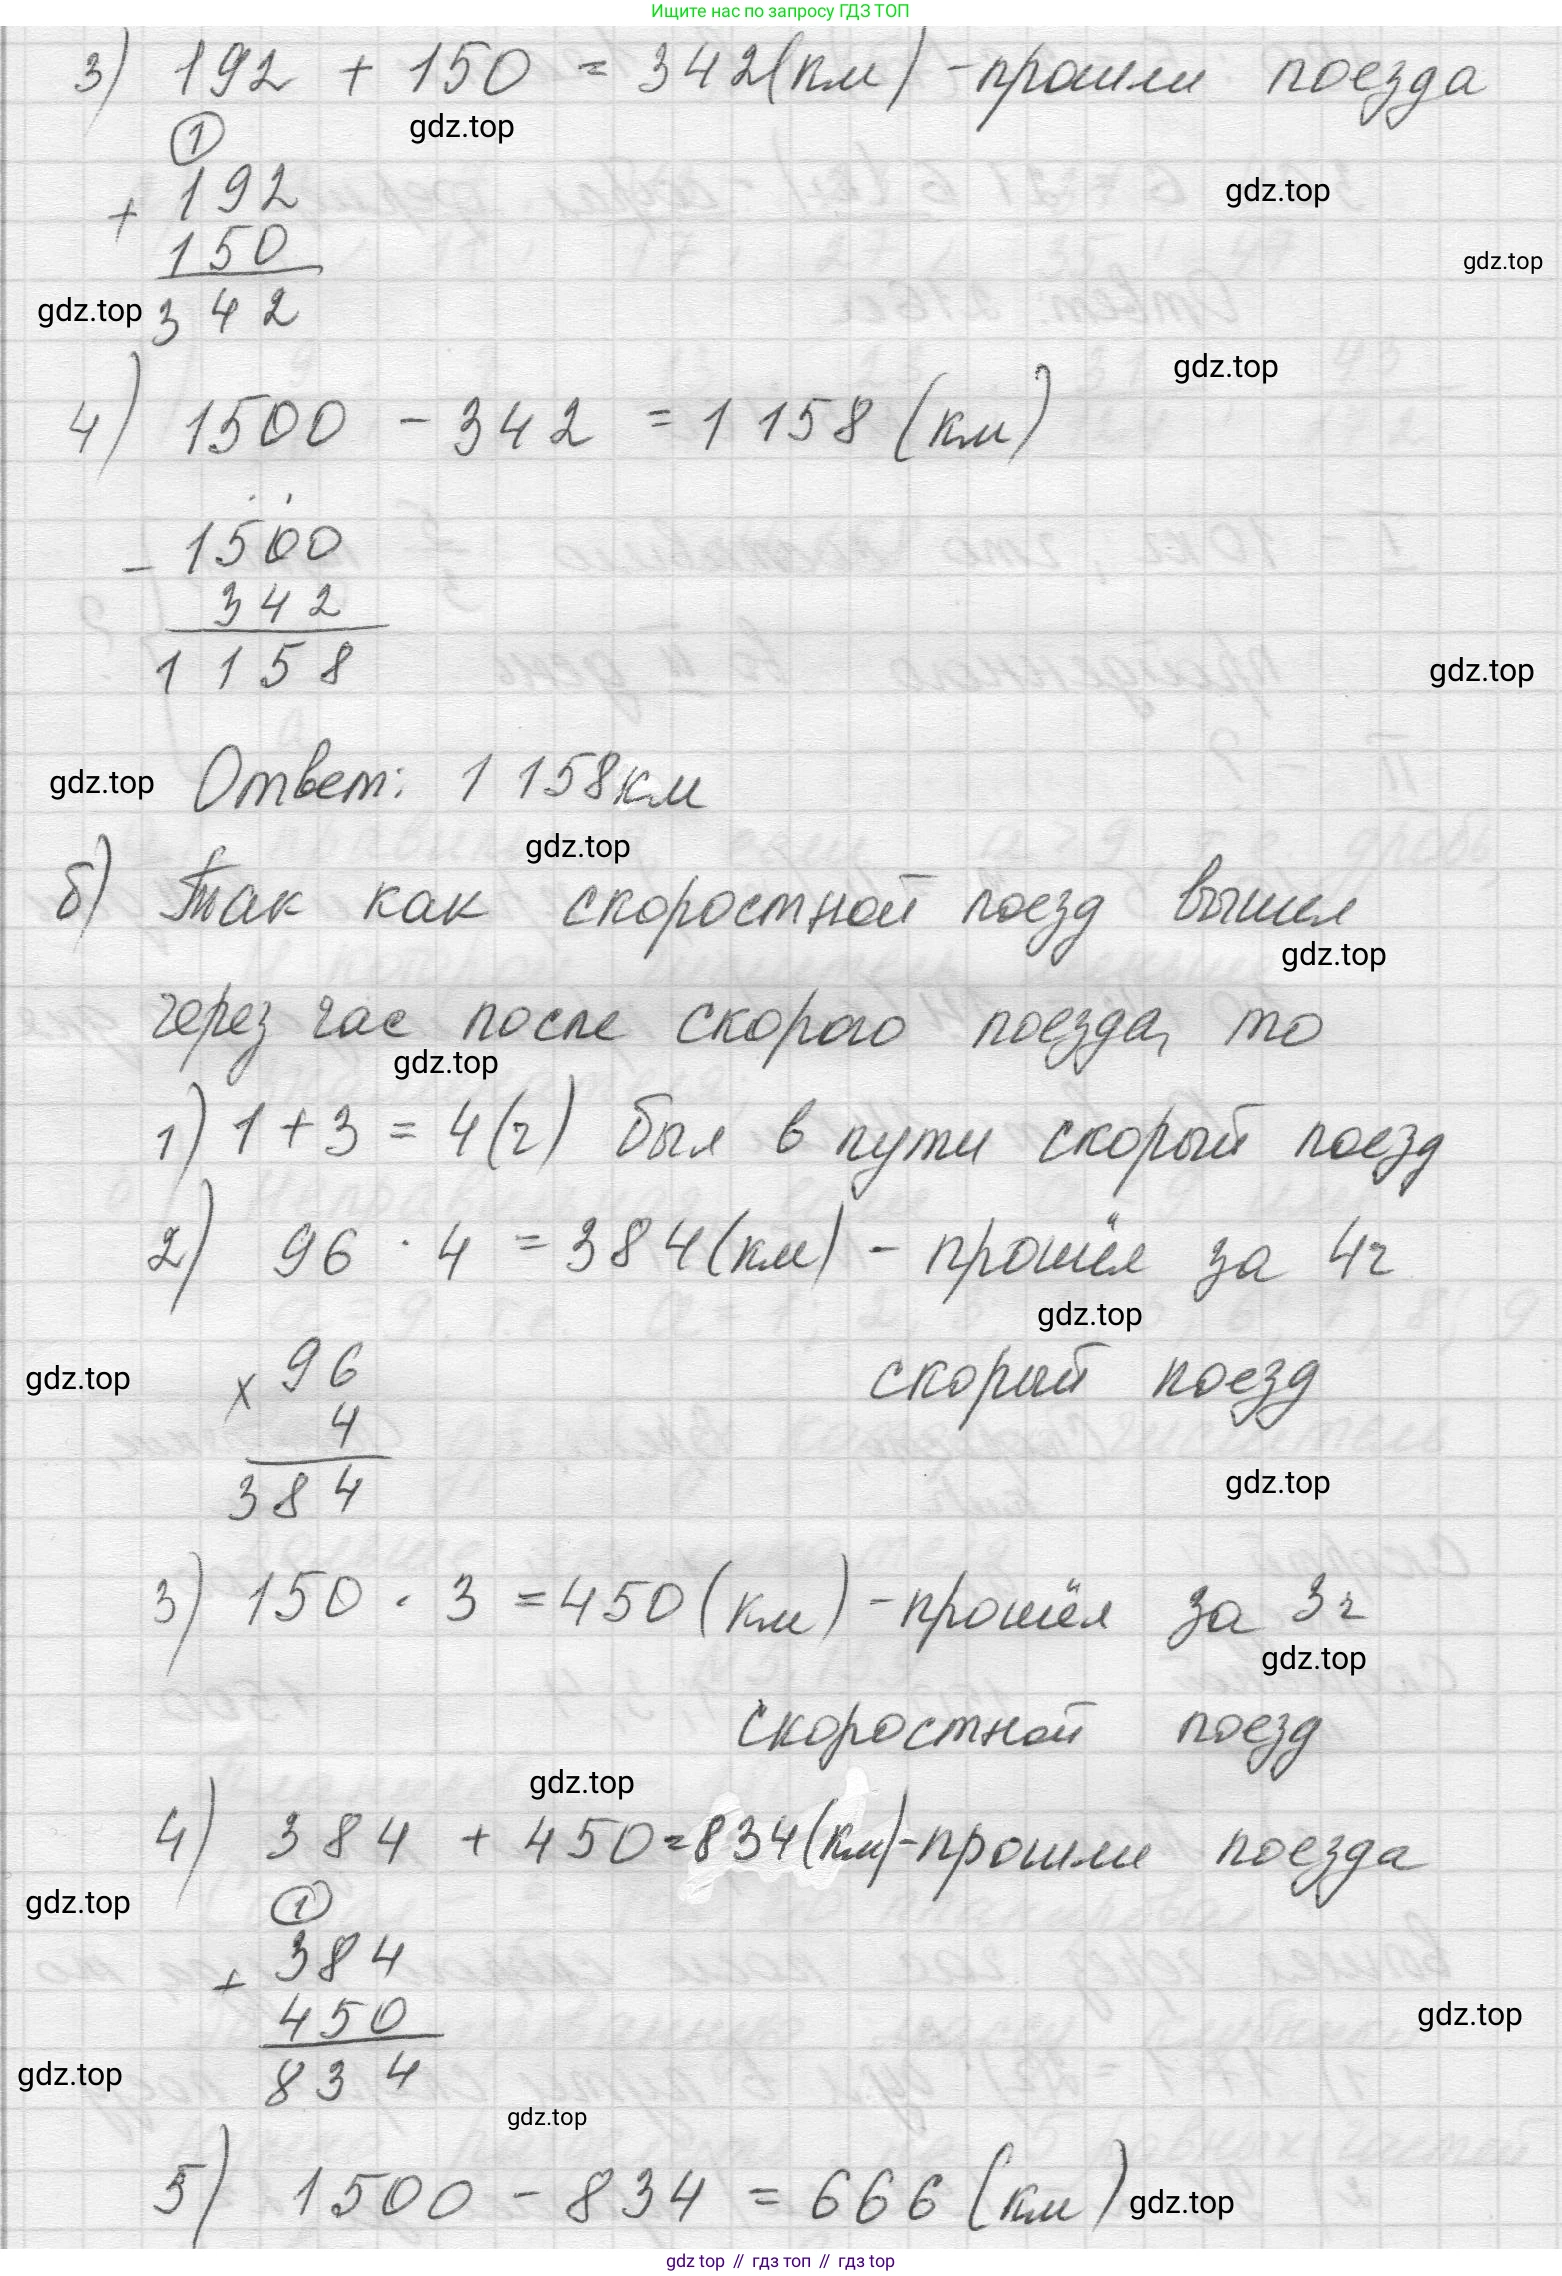 Ищите нас по запросу ГДЗ ТОП
3) 192 + 150 = 342(км) - прошли поезда
gdz.top
1
192
gdz.top
+
150
gdz.top
gdz.top 342
gdz.top
4) 1500 - 342 = 1158 (км)
1500
-
342
1158
gdz.top
gdz.top Ответ: 1 158км
gdz.top
б) Так как скоростной поезд вышел
gdz.top
через час после скорого поезда, то
gdz.top
1) 1 + 3 = 4(ч) был в пути скорый поезд
2) 96 · 4 = 384(км) - прошёл за 4ч
gdz.top
gdz.top × 96 скорый поезд
4
384
gdz.top
3) 150 · 3 = 450(км) - прошёл за 3ч
gdz.top
скоростной поезд
gdz.top
4) 384 + 450 = 834(км) - прошли поезда
gdz.top 1
384
+
450
gdz.top
gdz.top 834
gdz.top
5) 1500 - 834 = 666 (км) gdz.top
gdz top // гдз топ // гдз top